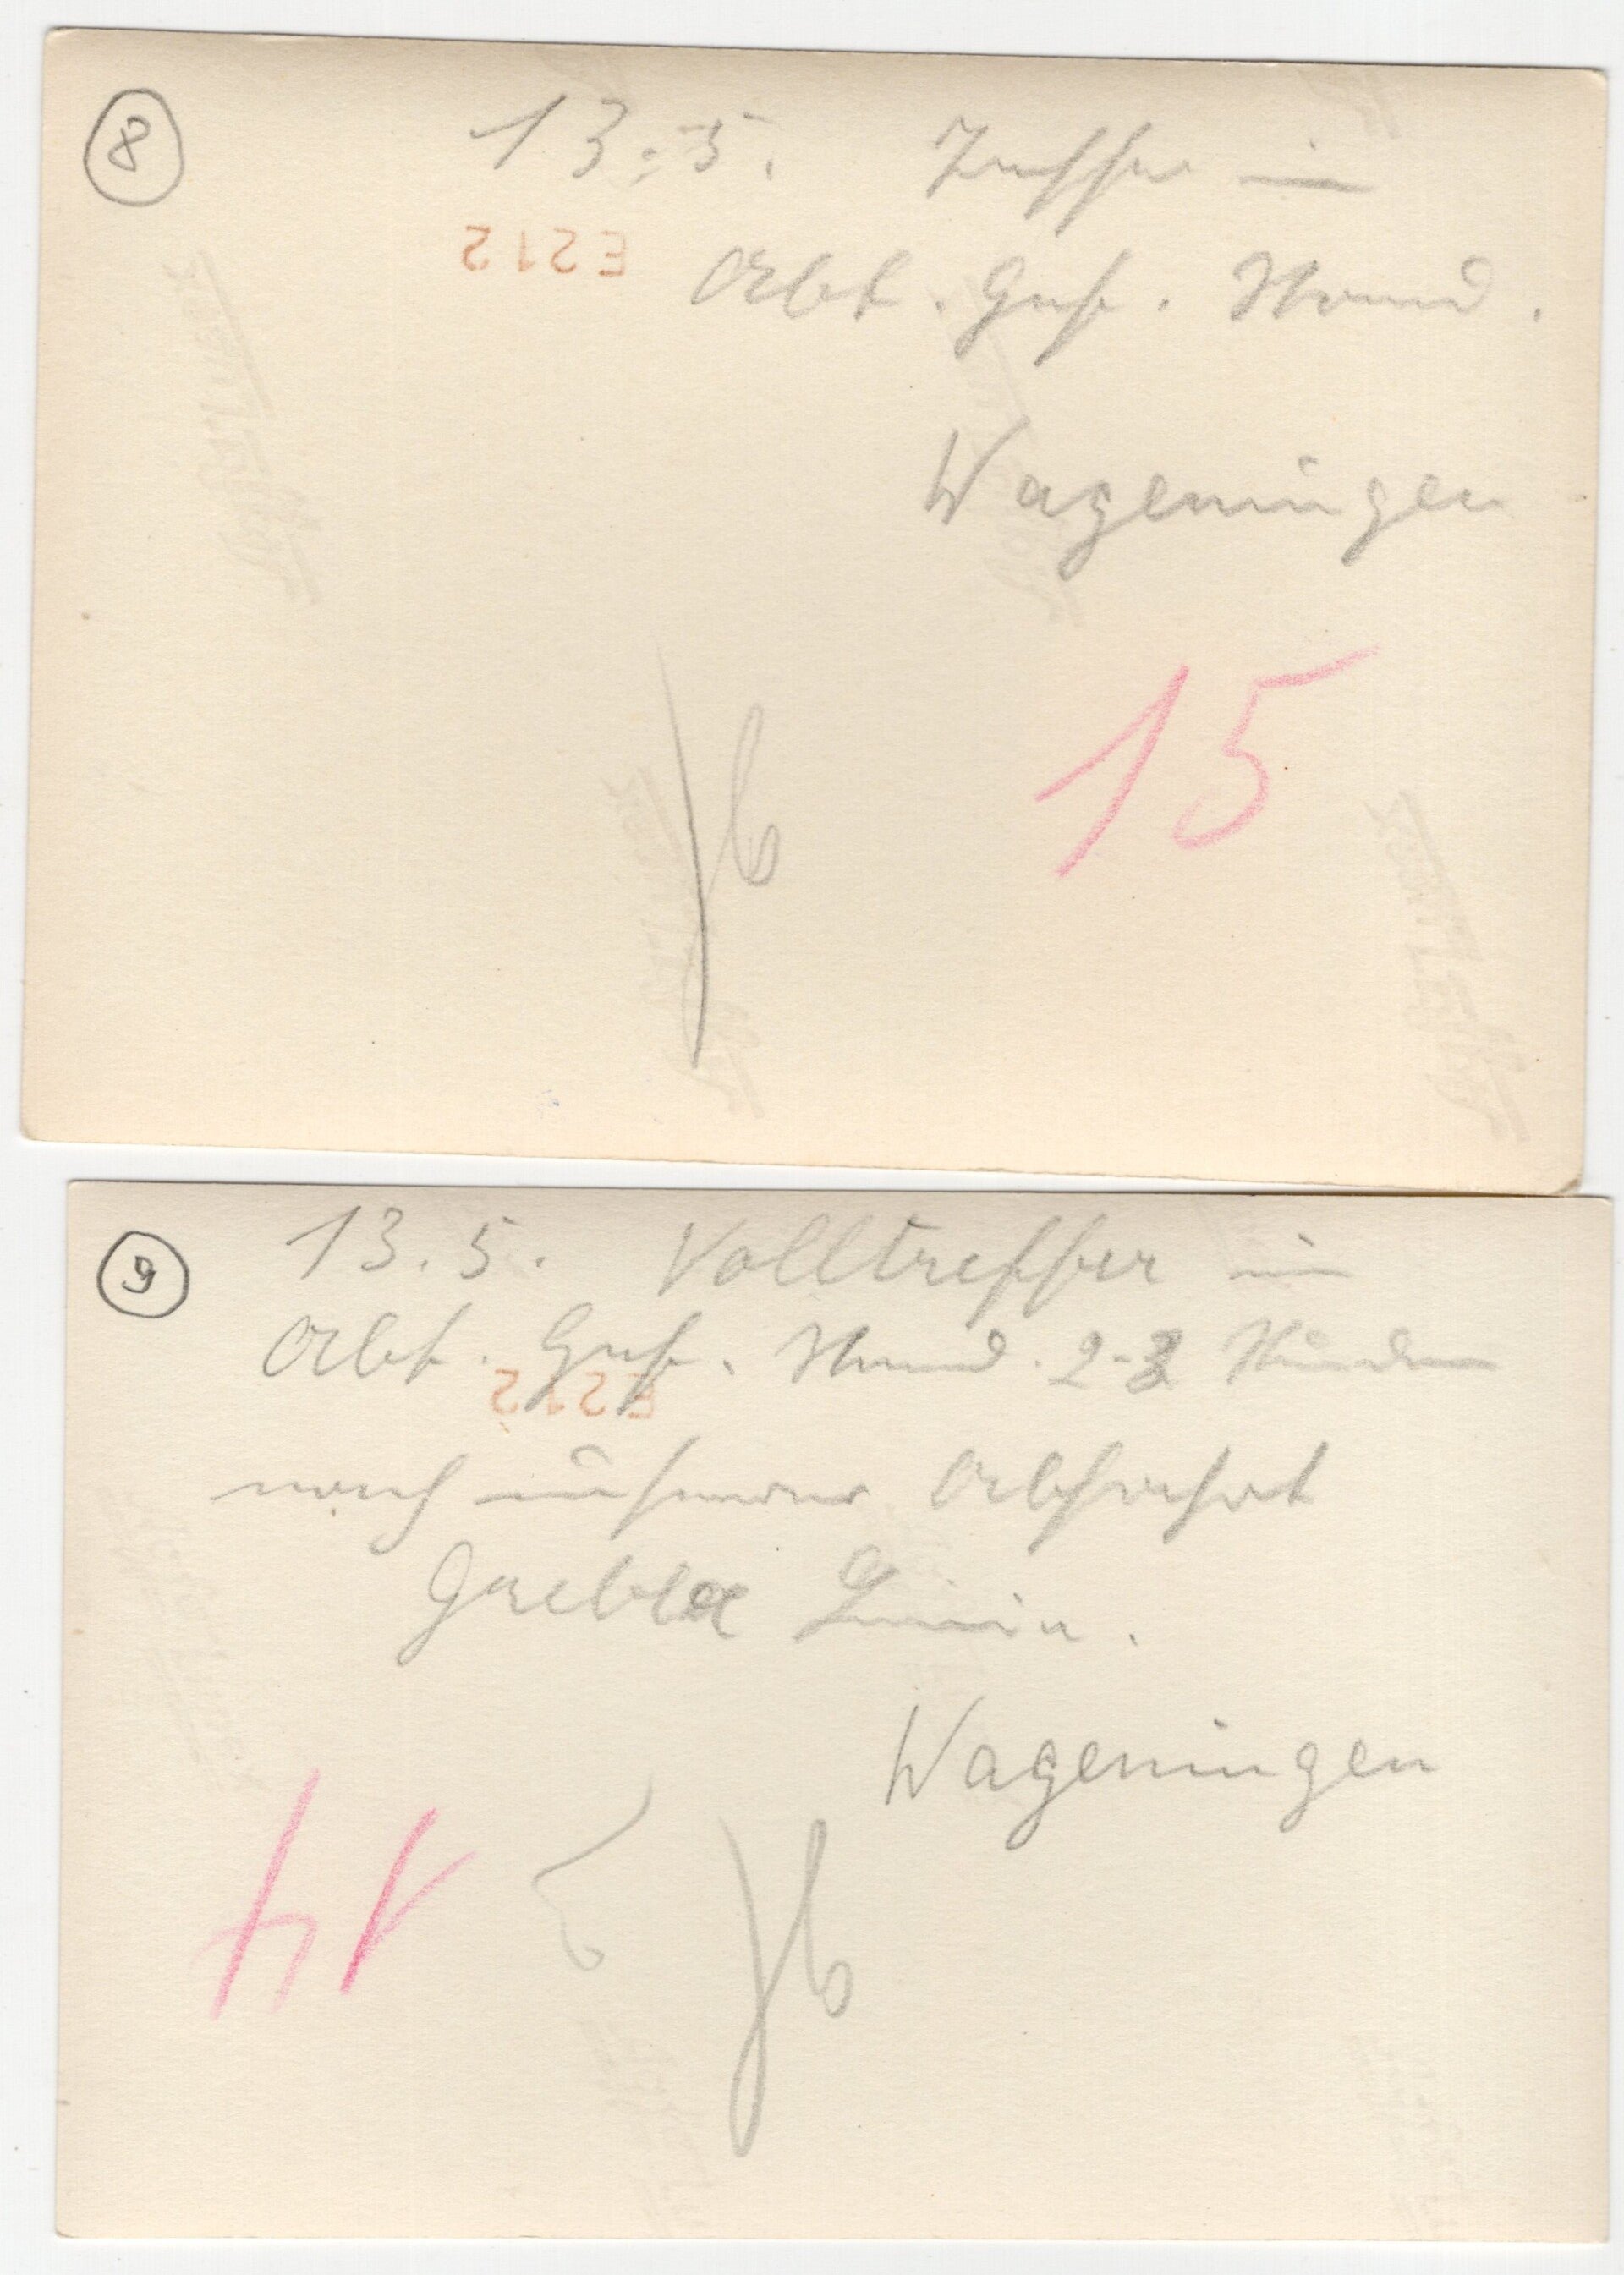 8
13.5. Treffer im
E212
Abt. Gef. Stand.
Wageningen
15
9
13.5. Volltreffer im
Abt. Gef. Stand. 2-3 Stunden
E212
nach unserer Abfahrt
Grebbe Linie.
Wageningen
14